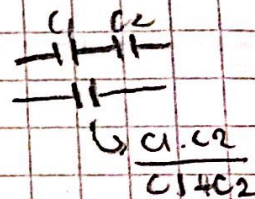 C1 C2
C1.C2
C1+C2